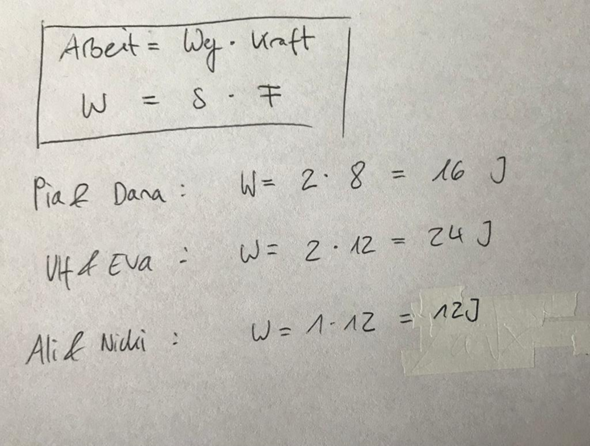 Arbeit = Weg · Kraft
W = s · F
Pia & Dana : W = 2 · 8 = 16 J
Ulf & Eva : W = 2 · 12 = 24 J
Ali & Nicki : W = 1 · 12 = 12 J